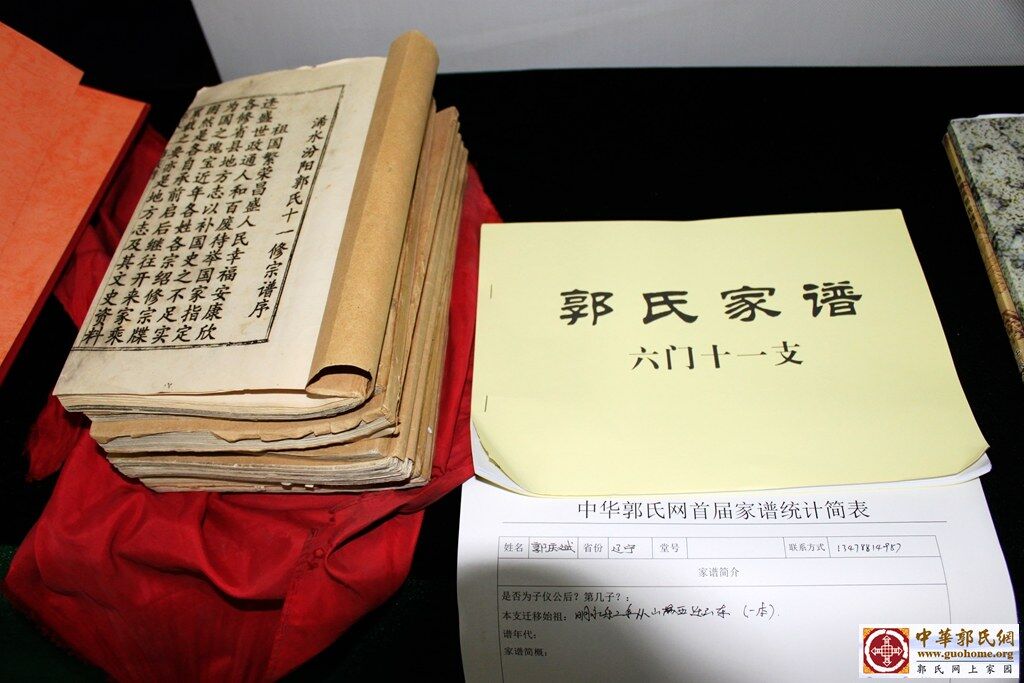 浠水汾阳郭氏十一修宗谱序
祖国繁荣昌盛人民幸福安康欣
逢盛世政通人和百废待举国家指定
各修省县地方志以补国史之不足实
为国之瑰宝近年各姓各宗绍修宗牒
固然是各自承前启后继往开来家乘
之要亦是地方志及其文史资料
郭氏家谱
六门十一支
中华郭氏网首届家谱统计简表
姓名 郭庆斌 省份 辽宁 堂号 联系方式
家谱简介
是否为子仪公后？第几子？：
本支迁移始祖：明永乐二年从山西迁山东（一本）.
谱年代：
家谱简概：
中華郭氏網
www.guohome.org
郭氏网上家园